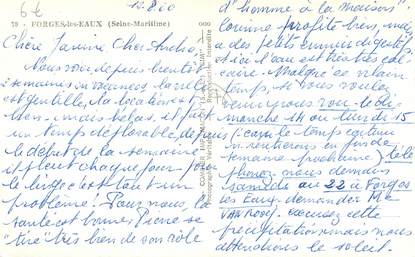 6€
12.8.60
78 - FORGES-les-EAUX (Seine-Maritime)
Chère Janine Cher André,
Nous voici depuis bientôt
2 semaines en vacances. la ville
est gentille, la location est
bien. mais hélas, il fait
un temps déplorable depuis
le début de la semaine
il pleut chaque jour, pour
le linge c'est tout un
problème! Pour nous, la
santé est bonne, Pierre se
"tire très bien de son rôle
d'homme à la maison".
Corinne profite bien, mais
a des petits ennuis digestifs
ici l'eau est très très cal-
caire. Malgré ce vilain
temps, si vous voulez
venir nous voir le di
manche 14 ou lundi 15
(car le temps continue
rentrerons en fin de
semaine prochaine) télé
phonez nous demain
samedi au 22 à Forges
les Eaux demander Mme
VAN ROOY. excusez cette
précipitation mais nous
attendions le soleil.